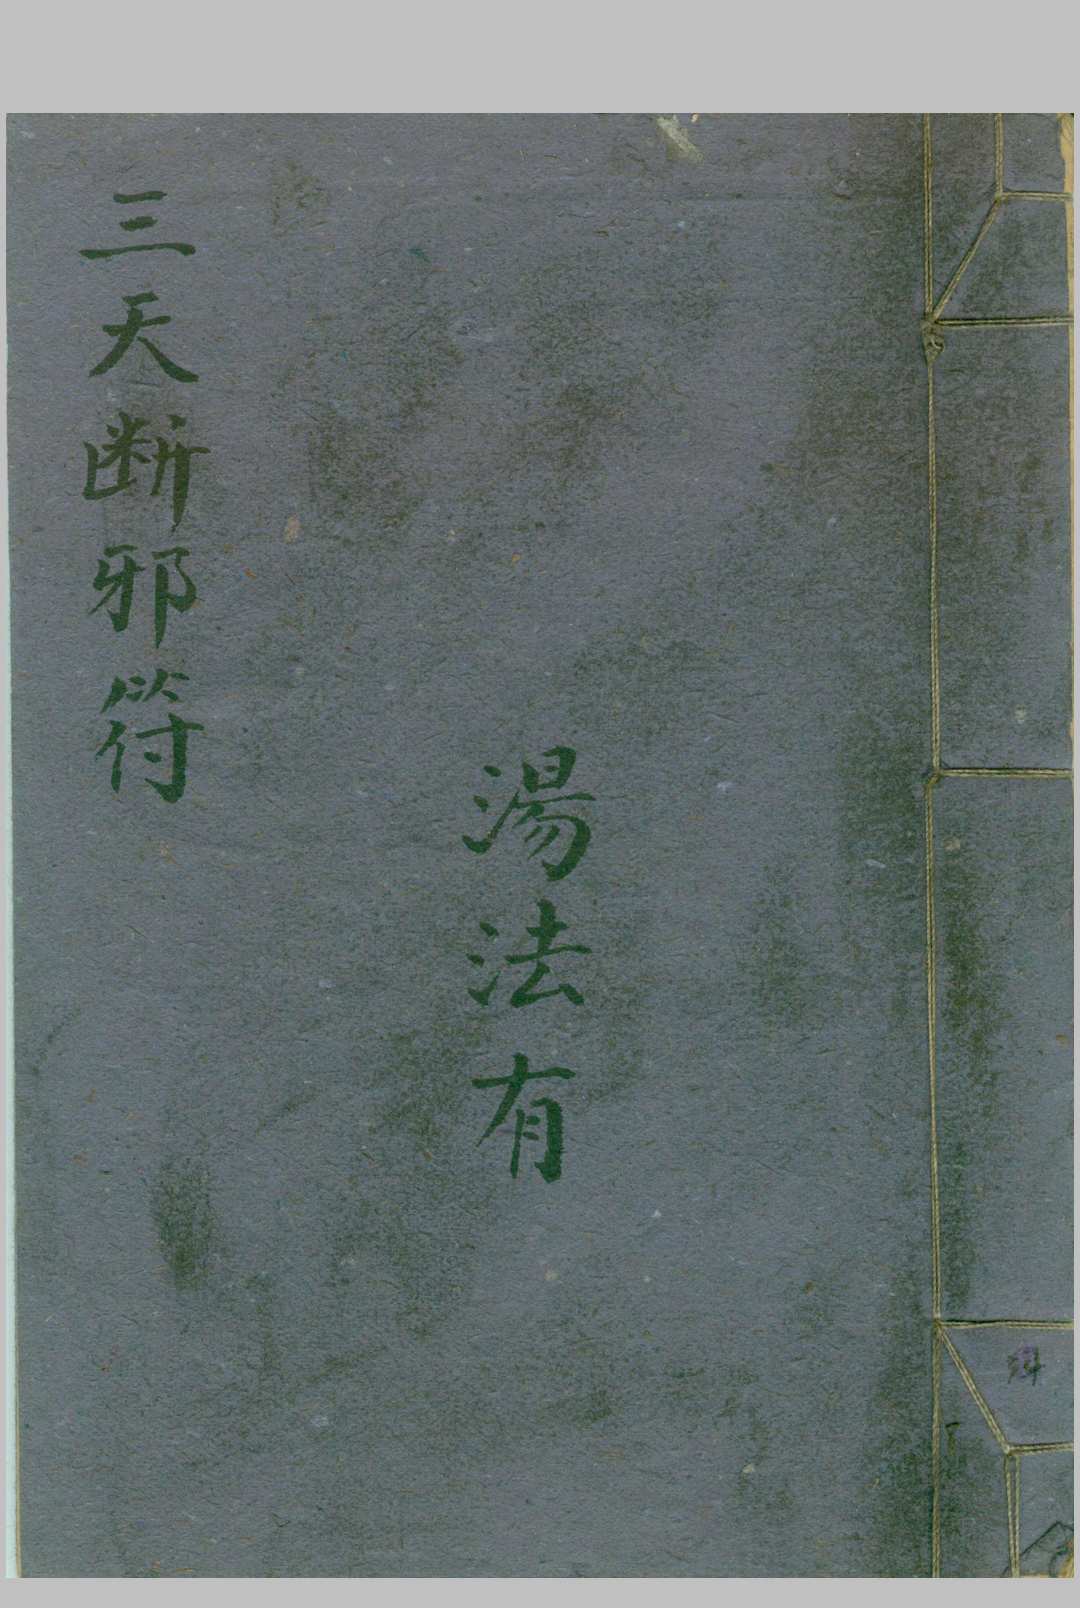 湯法有
三天断邪符